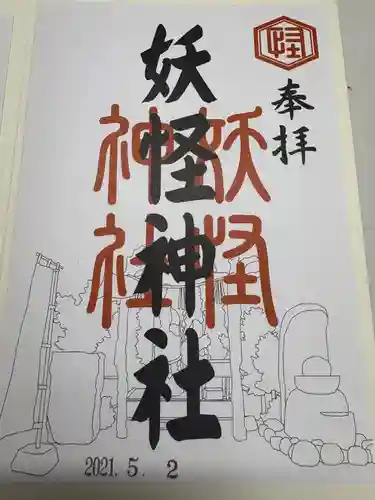 奉拝
妖怪神社
妖怪
神社
怪
2021. 5. 2